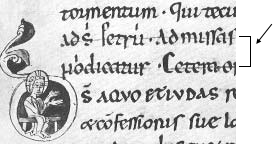 tormentum · Qui tecu
ad s̄ petrū · Admissas
p̄dicatur · Cetera
Ds̄ AQUO ET IUDAS r
& cōfessionis sue la